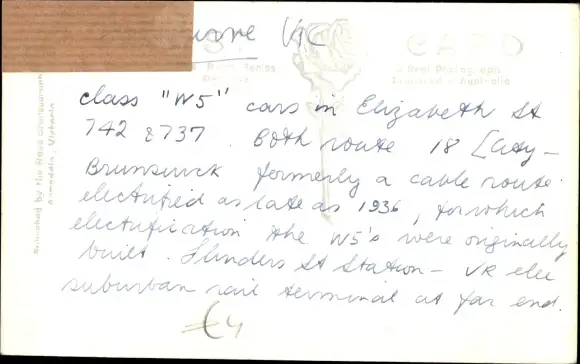 urne VIC
CARD
A Real Photograph
Produced in Australia
Published by the Rose Stereograph
Armadale, Victoria
class "W5" cars in Elizabeth St
742 & 737. Both route 18 [City –
Brunswick formerly a cable route
electrified as late as 1936, for which
electrification the W5's were originally
built. Flinders St Station – VR elec
suburban rail terminal at far end.
€4